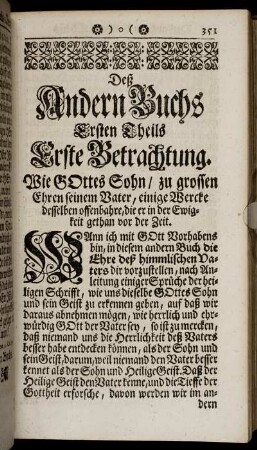 )o(
351
Deß
Andern Buchs
Ersten Theils
Erste Betrachtung.
Wie GOttes Sohn / zu grossen
Ehren seinem Vater, einige Wercke
desselben offenbahre, die er in der Ewig-
keit gethan vor der Zeit.
WAnn ich mit GOtt Vorhabens
bin, in diesem andern Buch die
Ehre deß himmlischen Va-
ters dir vorzustellen, nach An-
leitung einiger Sprüche der hei-
ligen Schrifft, wie uns dieselbe GOttes Sohn
und sein Geist zu erkennen geben, auf daß wir
daraus abnehmen mögen, wie herrlich und ehr-
würdig GOtt der Vater sey, so ist zu mercken,
daß niemand uns die Herrlichkeit deß Vaters
besser habe entdecken können, als der Sohn und
sein Geist, darum, weil niemand den Vater besser
kennet als der Sohn und Heilige Geist. Daß der
Heilige Geist den Vater kenne, und die Tieffe der
Gottheit erforsche, davon werden wir im an-
dern